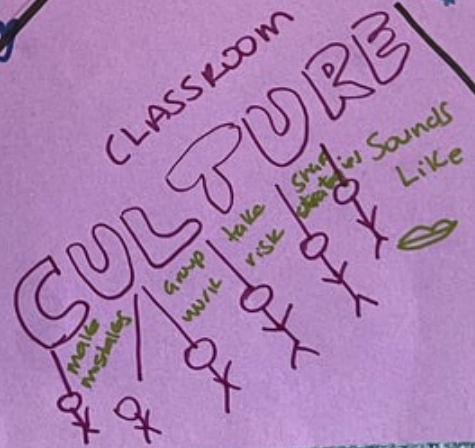 CLASSROOM
CULTURE
make
mistakes
Group
work
take
risk
share
strategies
Sounds
Like